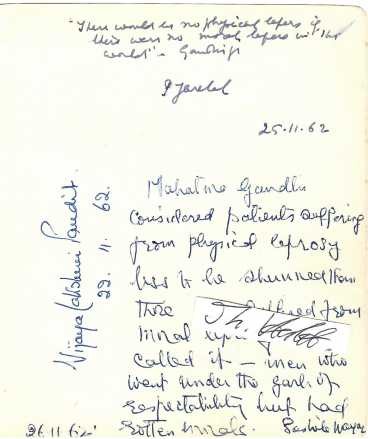 "There would be no physical lepers if
there were no moral lepers in the
world" - Gandhiji
25.11.62
Vijaya Lakshmi Pandit.
22. 11. 62.
Mahatma Gandhi
considered patients suffering
from physical leprosy
less to be shunned than
those suffered from
moral
called it — men who
went under the garb of
respectability but had
rotten morals.
Th.
26.11.62